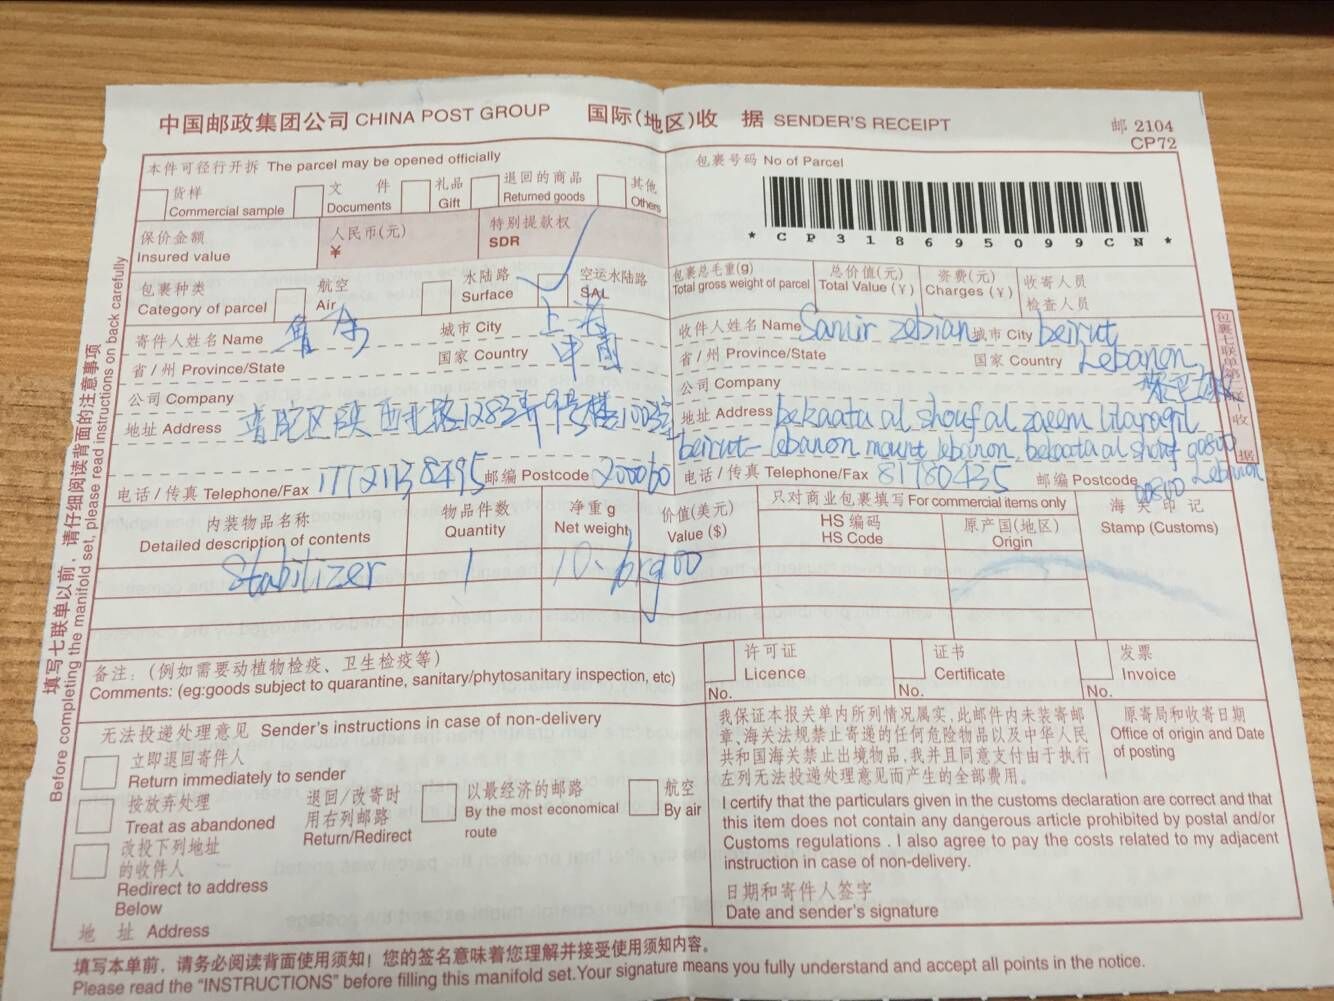 中国邮政集团公司 CHINA POST GROUP 国际(地区)收 据 SENDER'S RECEIPT
邮 2104
CP72
本件可径行开拆 The parcel may be opened officially
货样 Commercial sample
文 件 Documents
礼品 Gift
退回的商品 Returned goods
其他 Others
保价金额 Insured value
人民币(元) ¥
特别提款权 SDR
包裹种类 Category of parcel
航空 Air
水陆路 Surface
空运水陆路 SAL
包裹号码 No of Parcel
* C P 3 1 8 6 9 5 0 9 9 C N *
包裹总毛重(g) Total gross weight of parcel
总价值(元) Total Value (¥)
资费(元) Charges (¥)
收寄人员
检查人员
寄件人姓名 Name 城市 City 上海
省 / 州 Province/State 国家 Country 中国
公司 Company
地址 Address 普陀区陕西北路1283弄9号楼1003室
电话 / 传真 Telephone/Fax 17721138495 邮编 Postcode 200060
收件人姓名 Name Samir zebian 城市 City beirut
省 / 州 Province/State 国家 Country Lebanon
公司 Company 黎巴嫩
地址 Address bekaata al shouf al zaeem
beirut - lebanon mount lebanon. bekaata al shouf 00800
电话 / 传真 Telephone/Fax 81780435 邮编 Postcode 00800 Lebanon
内装物品名称 Detailed description of contents
物品件数 Quantity
净重 g Net weight
价值(美元) Value ($)
只对商业包裹填写 For commercial items only
HS 编码 HS Code
原产国(地区) Origin
海 关 印 记 Stamp (Customs)
Stabilizer 1
备注:(例如需要动植物检疫、卫生检疫等)
Comments: (eg:goods subject to quarantine, sanitary/phytosanitary inspection, etc)
许可证 Licence No.
证书 Certificate No.
发票 Invoice No.
无法投递处理意见 Sender's instructions in case of non-delivery
立即退回寄件人
Return immediately to sender
按放弃处理
Treat as abandoned
改投下列地址
的收件人
Redirect to address
Below
退回/改寄时
用右列邮路
Return/Redirect
以最经济的邮路
By the most economical
route
航空
By air
地 址 Address
我保证本报关单内所列情况属实,此邮件内未装寄邮
章、海关法规禁止寄递的任何危险物品以及中华人民
共和国海关禁止出境物品,我并且同意支付由于执行
左列无法投递处理意见而产生的全部费用。
I certify that the particulars given in the customs declaration are correct and that
this item does not contain any dangerous article prohibited by postal and/or
Customs regulations . I also agree to pay the costs related to my adjacent
instruction in case of non-delivery.
日期和寄件人签字
Date and sender's signature
原寄局和收寄日期
Office of origin and Date
of posting
填写本单前,请务必阅读背面使用须知!您的签名意味着您理解并接受使用须知内容。
Please read the "INSTRUCTIONS" before filling this manifold set.Your signature means you fully understand and accept all points in the notice.
填写七联单以前,请仔细阅读背面的注意事项
Before completing the manifold set, please read instructions on back carefully
包裹七联单第
收
据